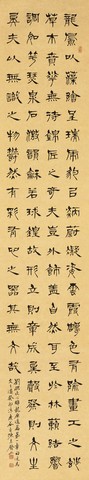 龍鳳以藻繪呈瑞虎豹以炳蔚凝姿雲霞雕色有踰畫工之妙
草木賁華無待錦匠之奇夫豈外飾蓋自然耳至於林籟結響
調如竽瑟泉石激韻和若球鍠故形立則章成矣聲發則文生
矣夫以無識之物鬱然有彩有心之器其無文歟